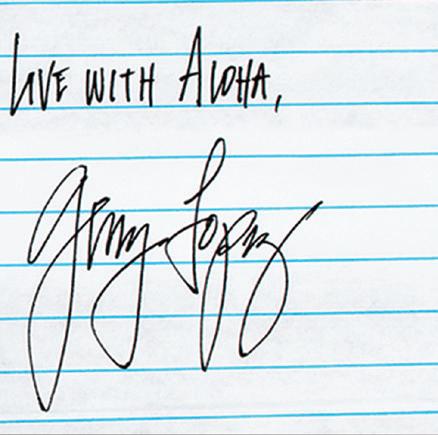 LIVE WITH ALOHA,
Gerry Lopez